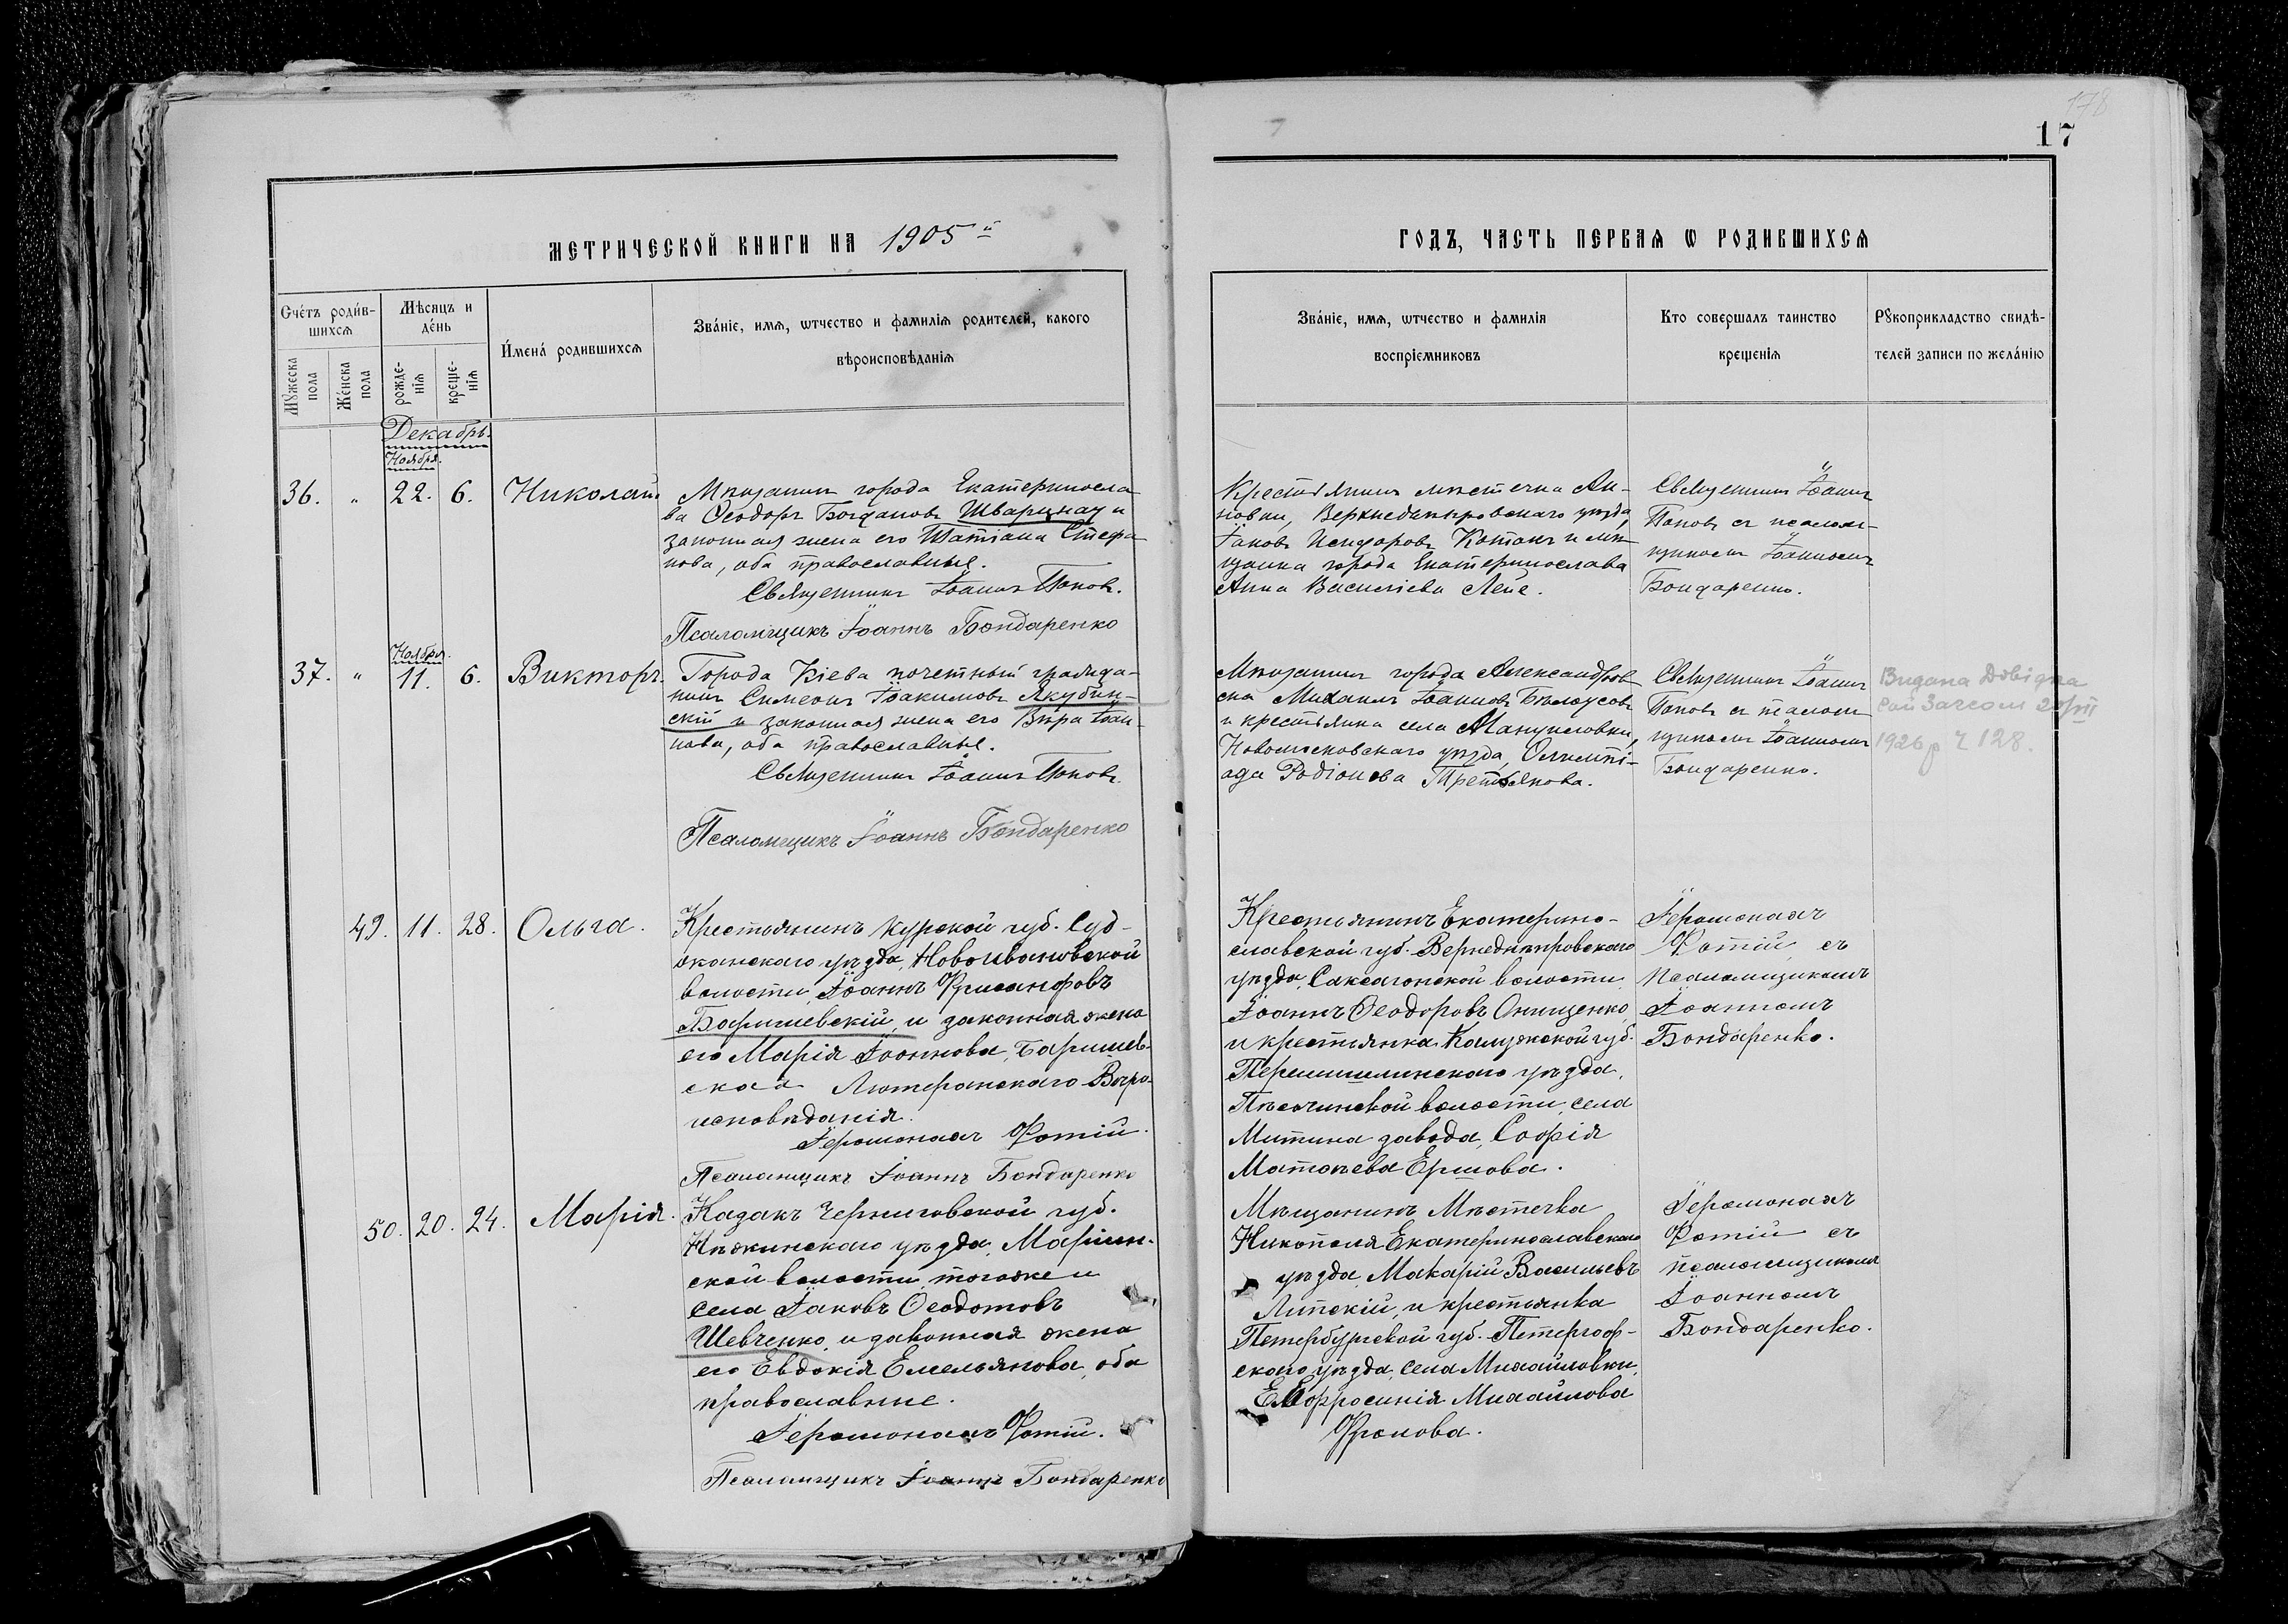 178
17
МЕТРИЧЕСКОЙ КНИГИ НА 1905й
ГОДЪ, ЧАСТЬ ПЕРВАЯ Ѡ РОДИВШИХСЯ
Счéтъ роди́в-
шихся
Мѣсяцъ и
дéнь
Мꙋ́жеска
пола
Жéнска
пола
рожде-
нїя
креще-
нїя
И́менá родившихся
Звáнїе, имя, ѡтчество и фамилїя родителей, какого
вѣроисповѣданїя
Звáнїе, имя, ѡтчество и фамилїя
воспрїемниковъ
Кто совершалъ таинство
крещенїя
Рꙋкоприкладство свидѣ-
телей записи по желáнїю
Декабрь.
Ноября.
36. " 22. 6. Николай.
Мѣщанинъ города Екатериносла
ва Ѳеодоръ Богдановъ Шварцнау и
законная жена его Татіана Стефа
нова, оба православные.
Священникъ Іоаннъ Поповъ.
Псаломщикъ Іоаннъ Бондаренко
Крестьянинъ мѣстечка Ан-
новки, Верхнеднѣпровскаго уѣзда,
Іаковъ Исидоровъ Котокъ и мѣ
щанка города Екатеринослава
Анна Василіева Лейе.
Священникъ Іоаннъ
Поповъ съ псалом-
щикомъ Іоанномъ
Бондаренко.
Ноября.
37. " 11. 6. Викторъ.
Города Кіева почетный гражда-
нинъ Симеонъ Іоакимовъ Якубин-
скій и законная жена его Вѣра Іоан-
нова, оба православные.
Священникъ Іоаннъ Поповъ
Псаломщикъ Іоаннъ Бондаренко
Мѣщанинъ города Александров
ска Михаилъ Іоанновъ Бѣлоусовъ
и крестьянка села Мануиловки,
Новомосковскаго уѣзда, Олимпі-
ада Родіонова Третьякова.
Священникъ Іоаннъ
Поповъ съ псалом
щикомъ Іоанномъ
Бондаренко.
Видана Довідка
20/III
1926 р Ч 128.
49. 11. 28. Ольга.
Крестьянинъ Курской губ. Суд-
жанскаго уѣзда, Новоивановской
волости, Іоаннъ Хрисанфовъ
Баришевскій, и законная жена
его Марія Іоаннова, Баришев-
ская Лютеранскаго Вѣро-
исповѣданія.
Іеромонахъ Фотій.
Псаломщикъ Іоаннъ Бондаренко
Крестьянинъ Екатерино-
славской губ. Вернеднѣпровскаго
уѣзда, Саксаганской волости,
Іоаннъ Ѳеодоровъ Онищенко
и крестьянка Калужской губ.
Перемишлинскаго уѣзда,
волости, села
Митина завода, Софія
Матѳѣева Ершова.
Іеромонахъ
Фотій съ
псаломщикомъ
Іоанномъ
Бондаренко.
50. 20. 24. Марія.
Казакъ Черниговской губ.
Нѣжинскаго уѣзда, Марiин-
ской волости тогоже и
села Іаковъ Ѳеодотовъ
Шевченко, и законная жена
его Евдокія Емельянова, оба
православные.
Іеромонахъ Фотій.
Псаломщикъ Іоаннъ Бондаренко
Мѣщанинъ Мѣстечка
Никополя Екатеринославскаго
уѣзда, Макарій Васильевъ
Липскій, и крестьянка
Петербургской губ. Петергоф-
скаго уѣзда, села Михайловки,
Ефросинія Михайлова
Фролова.
Іеромонахъ
Фотій съ
псаломщикомъ
Іоанномъ
Бондаренко.